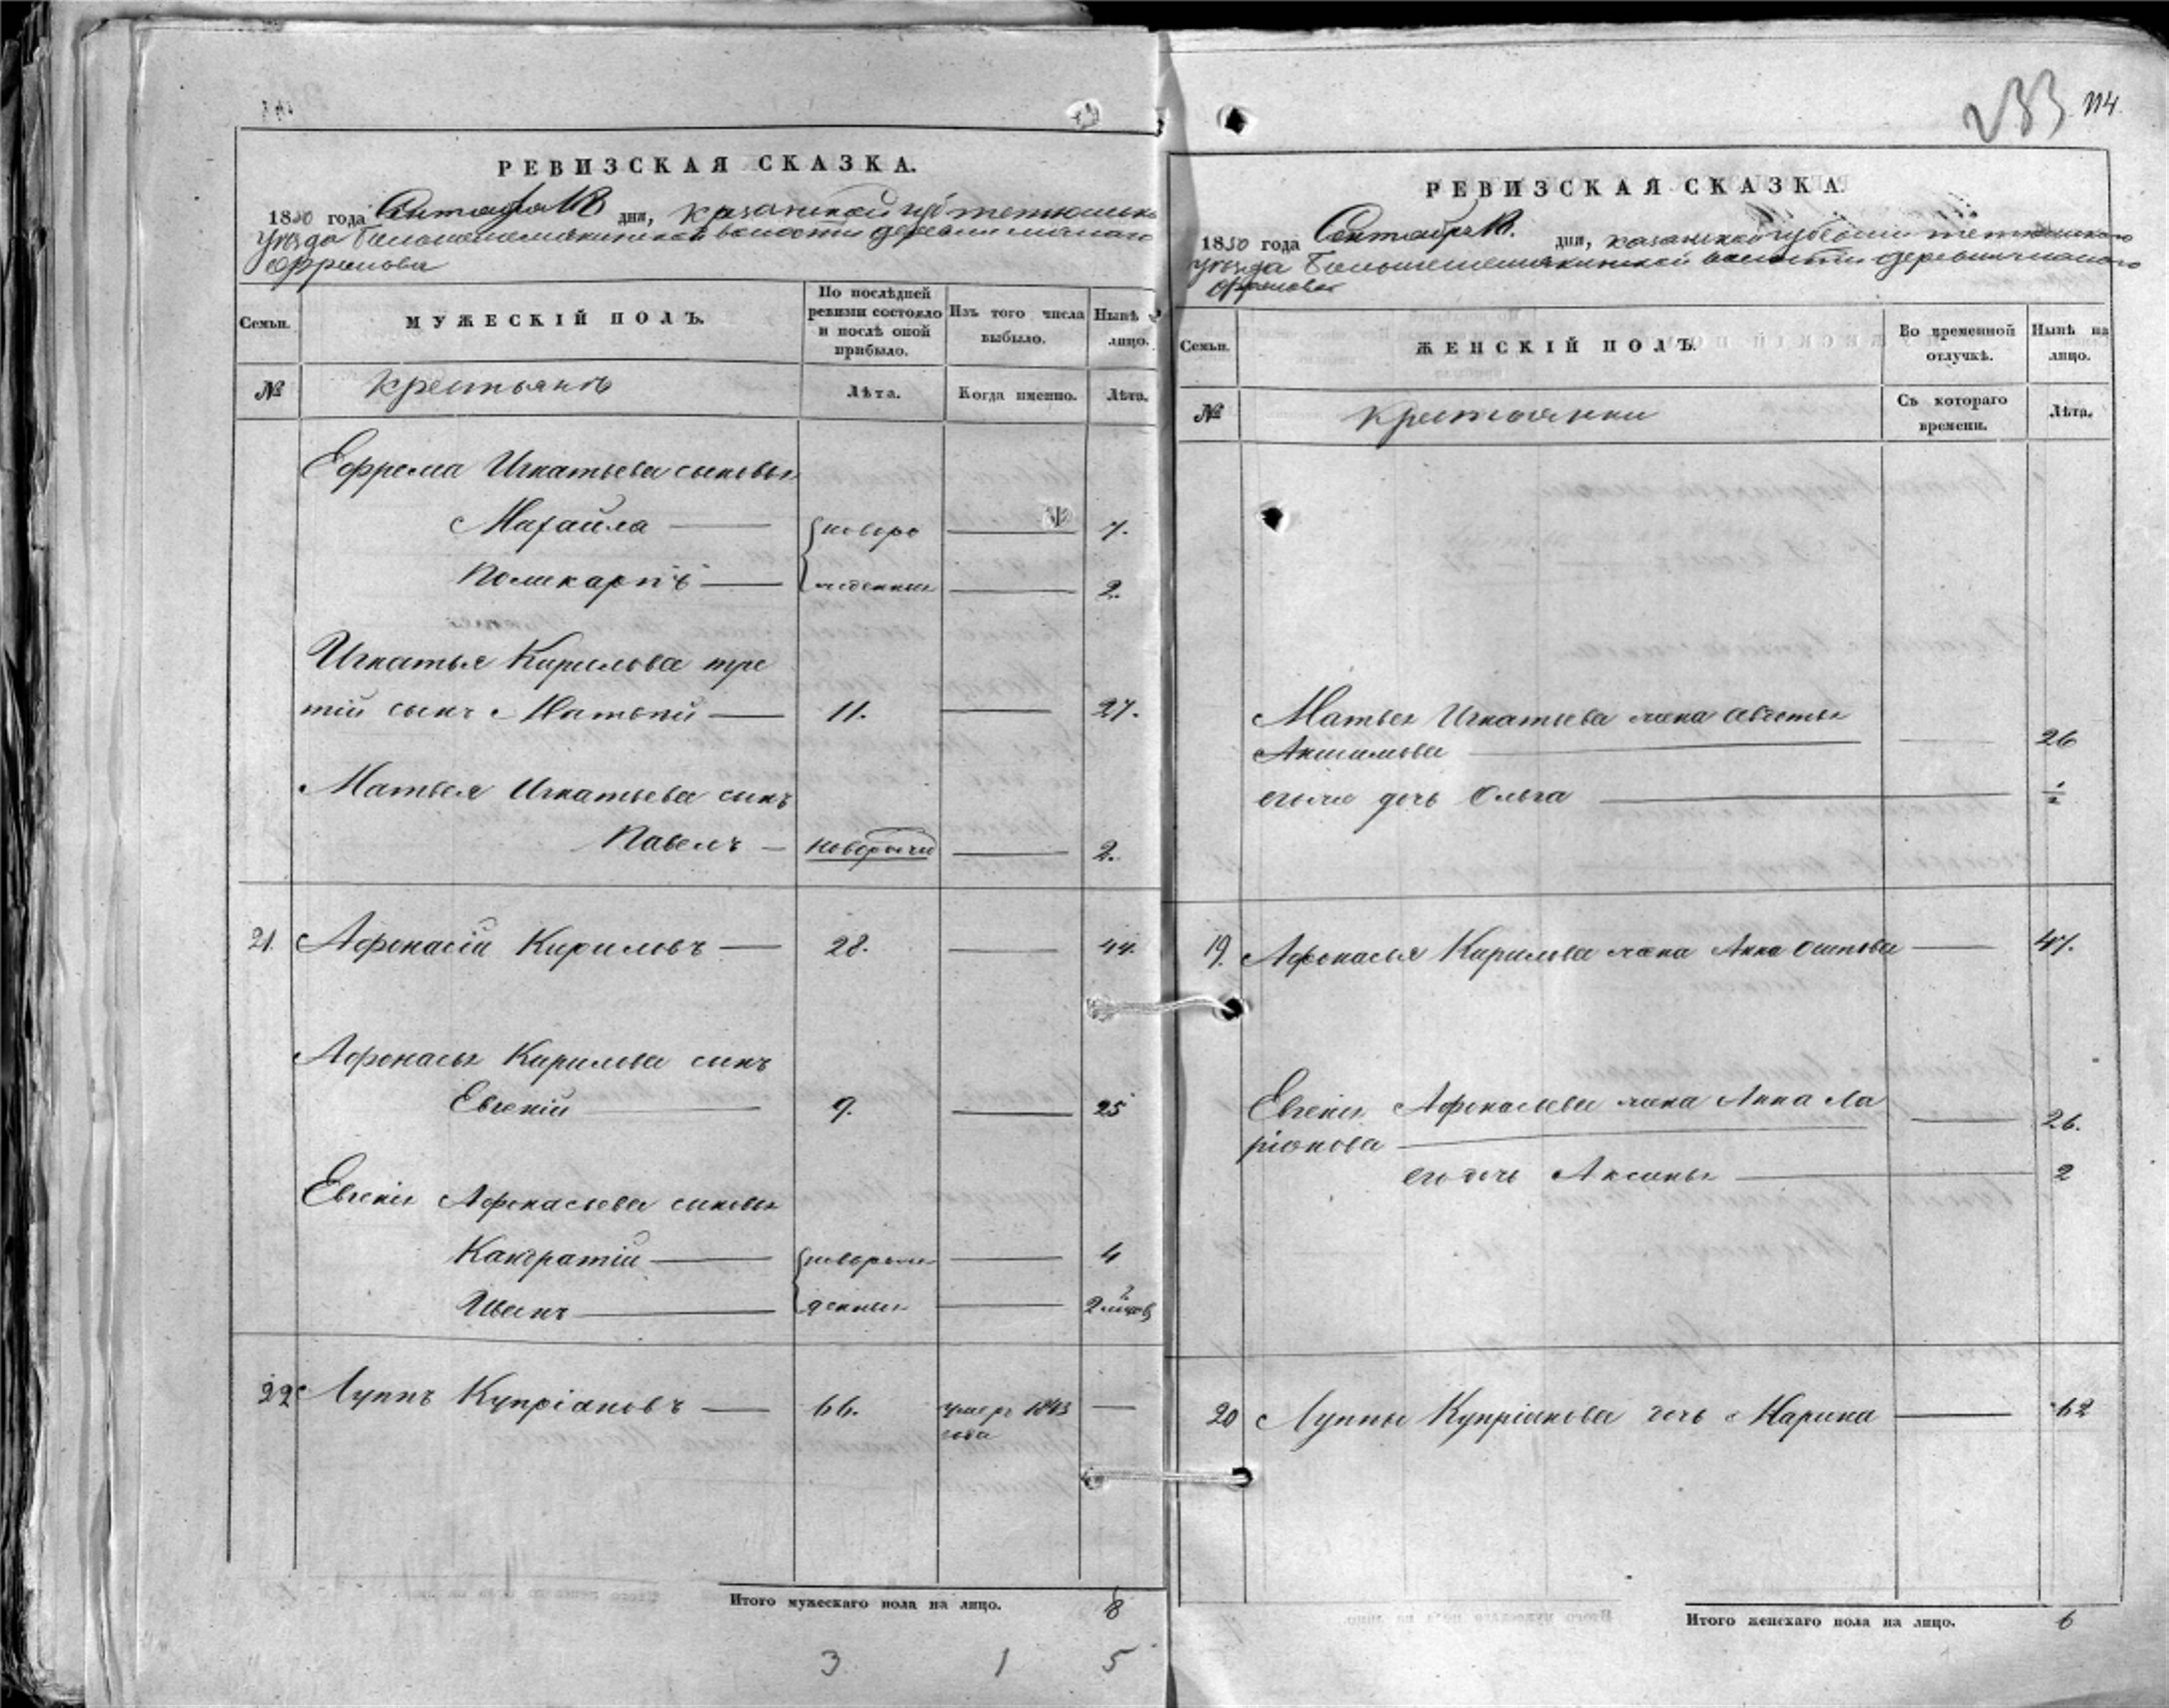 РЕВИЗСКАЯ СКАЗКА.
1850 года Сентября 18 дня, Казанской губ Тетюшска
уезда Большешемякинской волости деревни Малаго
Семьи.
МУЖЕСКІЙ ПОЛЪ.
По послѣдней ревизіи состояло и послѣ оной прибыло.
Изъ того числа выбыло.
Нынѣ на лицо.
№
крестьянъ
Лѣта.
Когда именно.
Лѣта.
Ефрема Игнатьева сыновья
Михайла новоро 7.
Поликарпъ жденныя 2.
Игнатья Кирилова тре
тій сынъ Матвѣй 11. 27.
Матвея Игнатьева сынъ
Павелъ новорожд 2.
21. Афонасій Кириловъ 28. 44.
Афонасья Кирилова сынъ
Евгеній 9. 25
Евгенія Афонасьева сыновья
Кандратій новорож 4
Иванъ денныя
22 Луппъ Купріановъ 66. умеръ 1843
года
Итого мужескаго пола на лицо. 8
3 1 5
233 114
РЕВИЗСКАЯ СКАЗКА
1850 года Сентября 18. дня, Казанской губернии Тетюшскаго
уезда Большешемякинской волости деревни Малаго
Семьи.
ЖЕНСКІЙ ПОЛЪ.
Во временной отлучкѣ.
Нынѣ на лицо.
№
крестьянки
Съ котораго времени.
Лѣта.
Матвея Игнатьева жена Авдотья
26
дочь Ольга ½
19. Афонасья Кирилова жена Анна Осипова 47.
Евгенія Афонасьева жена Анна Ла
ріонова 26.
его дочь Аксинья 2
20 Луппы Купріянова дочь Марина 62
Итого женскаго пола на лицо. 6